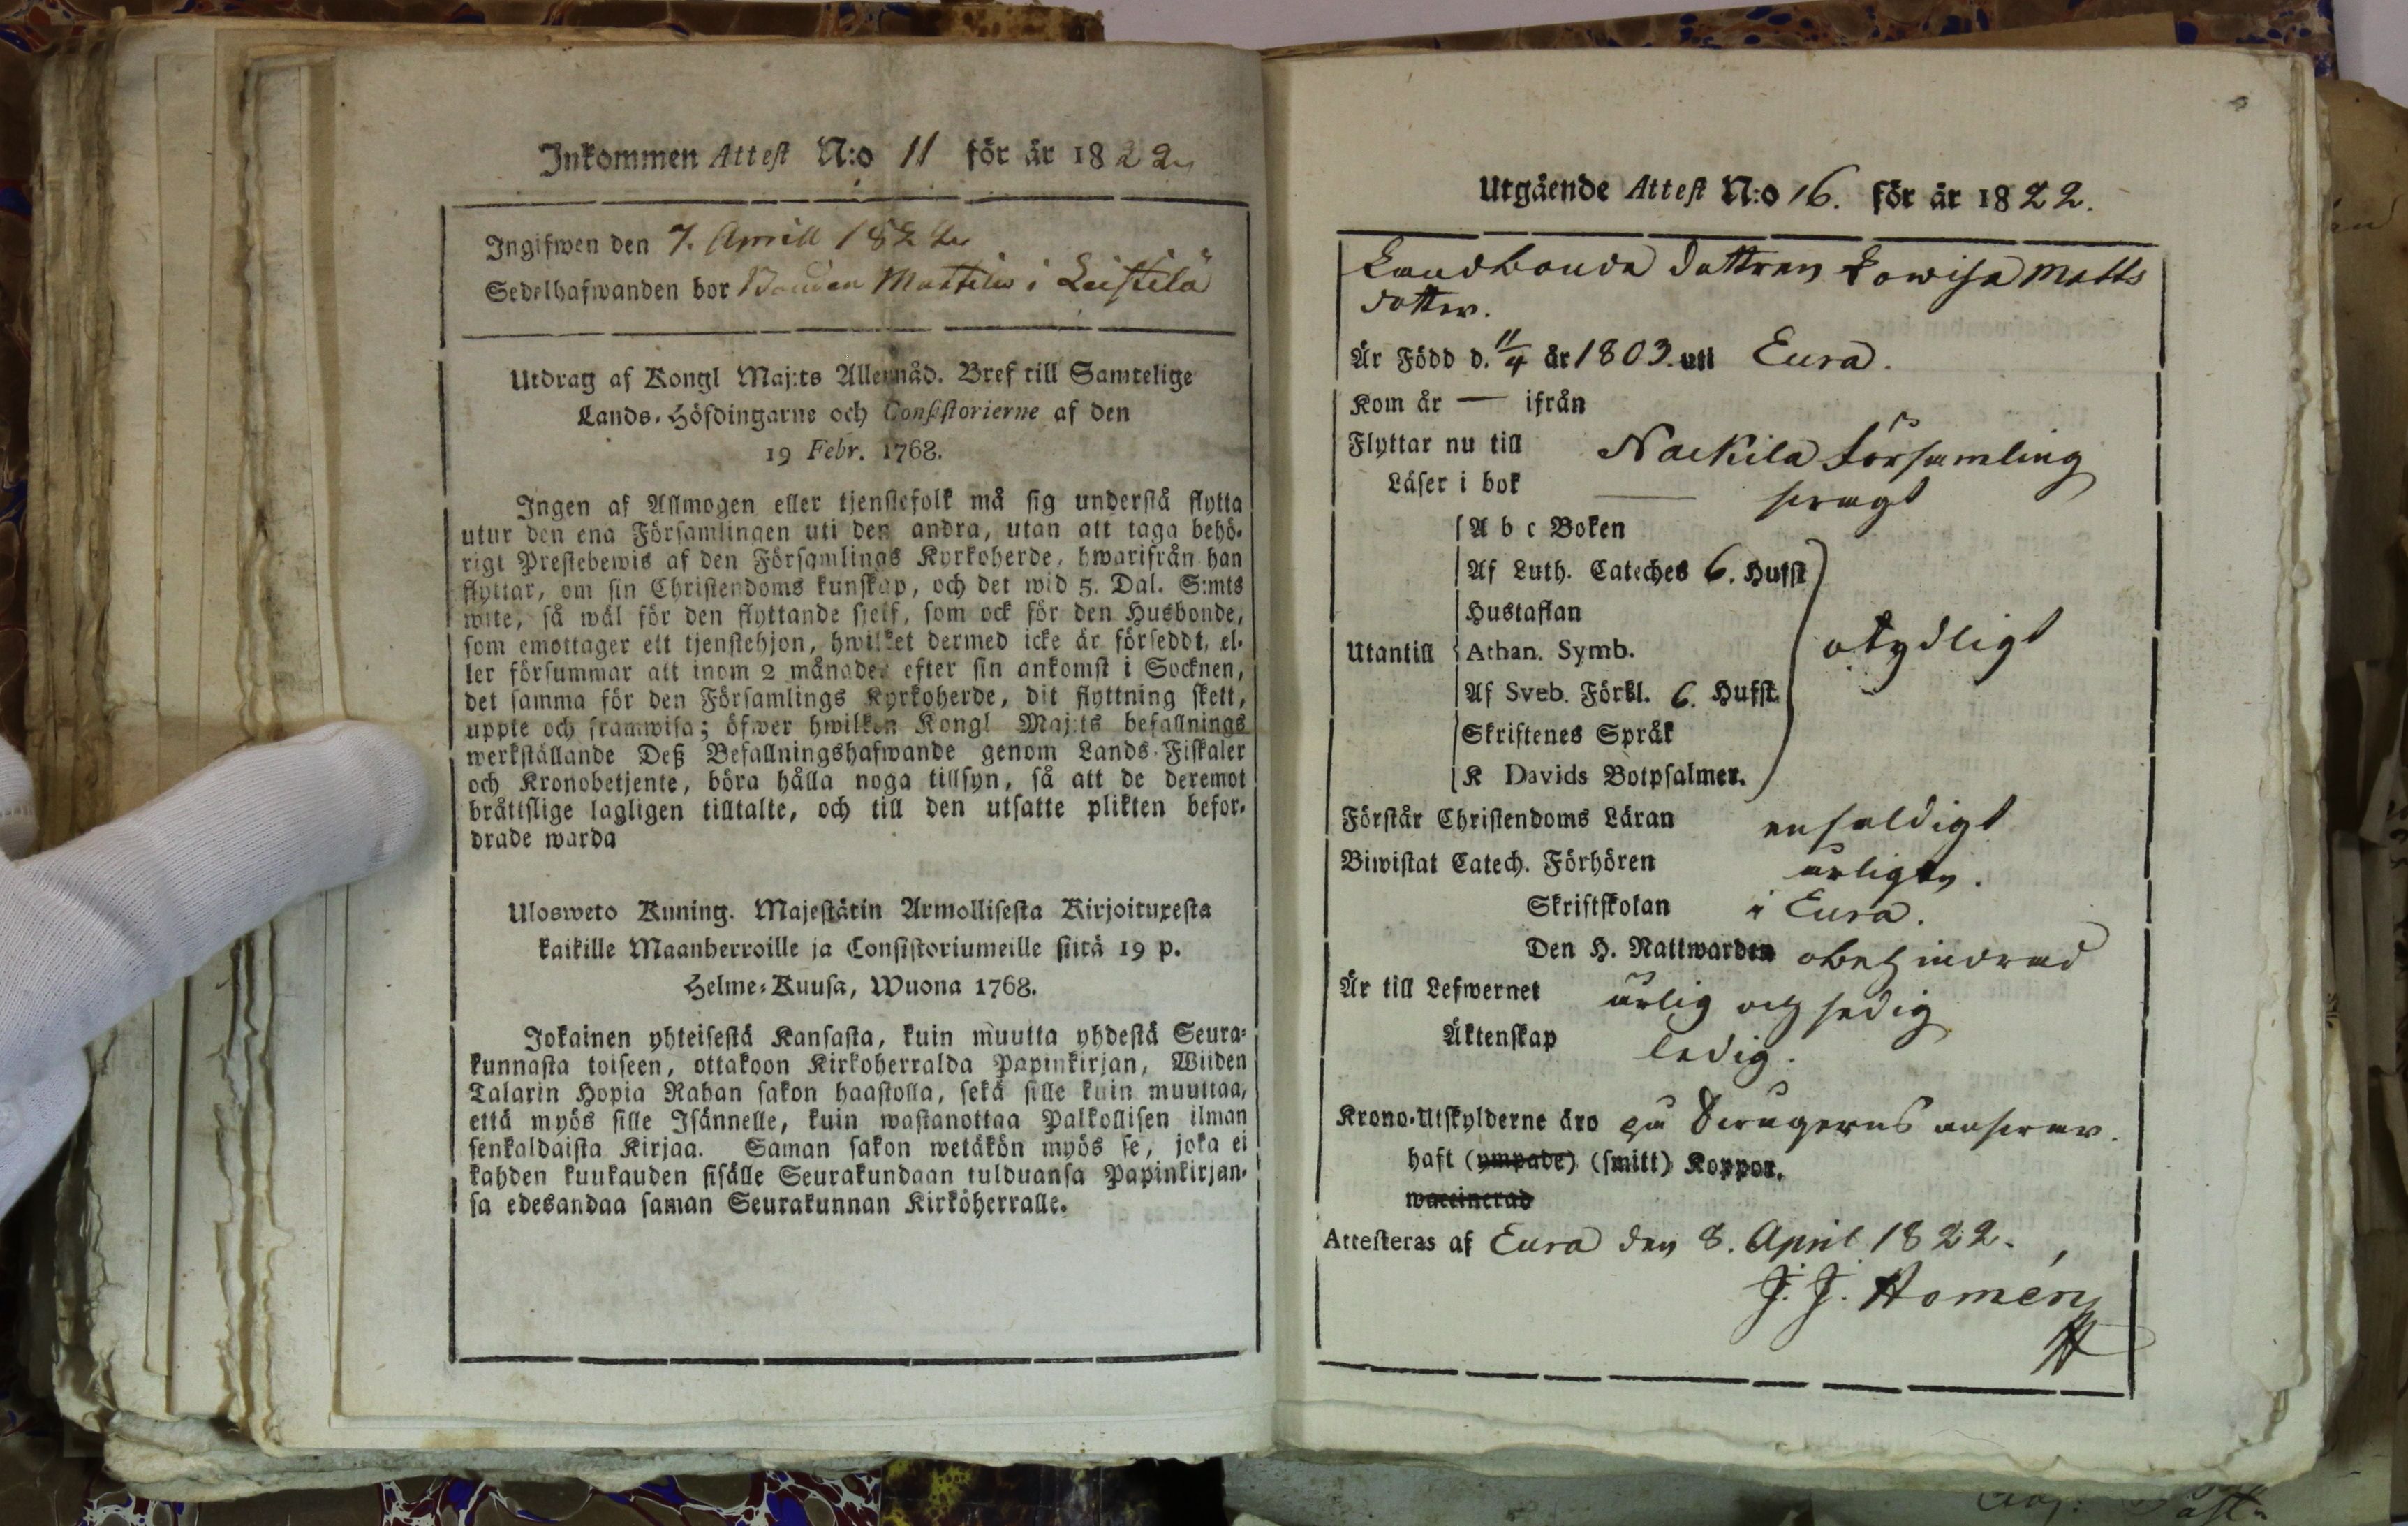 Inkommen Attest N:o 11 för år 1822
Ingifwen den 7. Aprill 1822
Sedelhafwanden bor Bonden Mattilas i Leistilä
Utdrag af Kongl Maj:ts Allernåd. Bref till Samtelige
Lands-Höfdingarne och Consistorierne af den
19 Febr. 1768.
Ingen af Allmogen eller tjenstefolk må sig understå flytta
utur den ena Församlingen uti den andra, utan att taga behö-
rigt Prestebewis af den Församlings Kyrkoherde, hwarifrån han
flyttar, om sin Christendoms kunskap, och det wid 5. Dal. S:mts
wite, så wäl för den flyttande sjelf, som ock för den Husbonde,
som emottager ett tjenstehjon, hwilket dermed icke är förseddt, el-
ler försummar att inom 2 månader efter sin ankomst i Socknen,
det samma för den Församlings Kyrkoherde, dit flyttning skett,
uppte och framwisa; öfwer hwilken Kongl Maj:ts befallnings
werkställande Deß Befallningshafwande genom Lands-Fiskaler
och Kronobetjente, böra hålla noga tillsyn, så att de deremot
bråttslige lagligen tilltalte, och till den utsatte plikten befor-
drade warda
Ulosweto Kuning. Majestätin Armollisesta Kirjoituxesta
kaikille Maanherroille ja Consistoriumeille siitä 19 p.
Helme-Kuusa, Wuona 1768.
Jokainen yhteisestä Kansasta, kuin muutta yhdestä Seura-
kunnasta toiseen, ottakoon Kirkoherralda Papinkirjan, Wiiden
Talarin Hopia Rahan sakon haastolla, sekä sille kuin muuttaa,
että myös sille Isännelle, kuin wastanottaa Palkollisen ilman
senkaldaista Kirjaa. Saman sakon wetäkön myös se, joka ei
kahden kuukauden sisälle Seurakundaan tulduansa Papinkirjan-
sa edesandaa saman Seurakunnan Kirköherralle.
Utgående Attest N:o 16. för år 1822.
Landbonde dottren Lowisa Matts
dotter.
Är Född d. 11/4 år 1803. uti Eura.
Kom år — ifrån
Flyttar nu till Nackila Församling
Läser i bok — swagt
A b c Boken
Af Luth. Cateches 6. Hufst
Hustaflan
Utantill Athan. Symb. otydligt
Af Sveb. Förkl. 6. Hufst.
Skriftenes Språk
K Davids Botpsalmer.
Förstår Christendoms Läran enfaldigt
Biwistat Catech. Förhören årligen.
Skriftskolan i Eura.
Den H. Nattwarden obehindrad
Är till Lefwernet ärlig och sedig
Äktenskap ledig.
Krono-Utskylderne äro på Swågerns answar.
haft (ympade) (smitt) Koppor.
waccinerad
Attesteras af Eura den 8. April 1822.
J. J. Homén